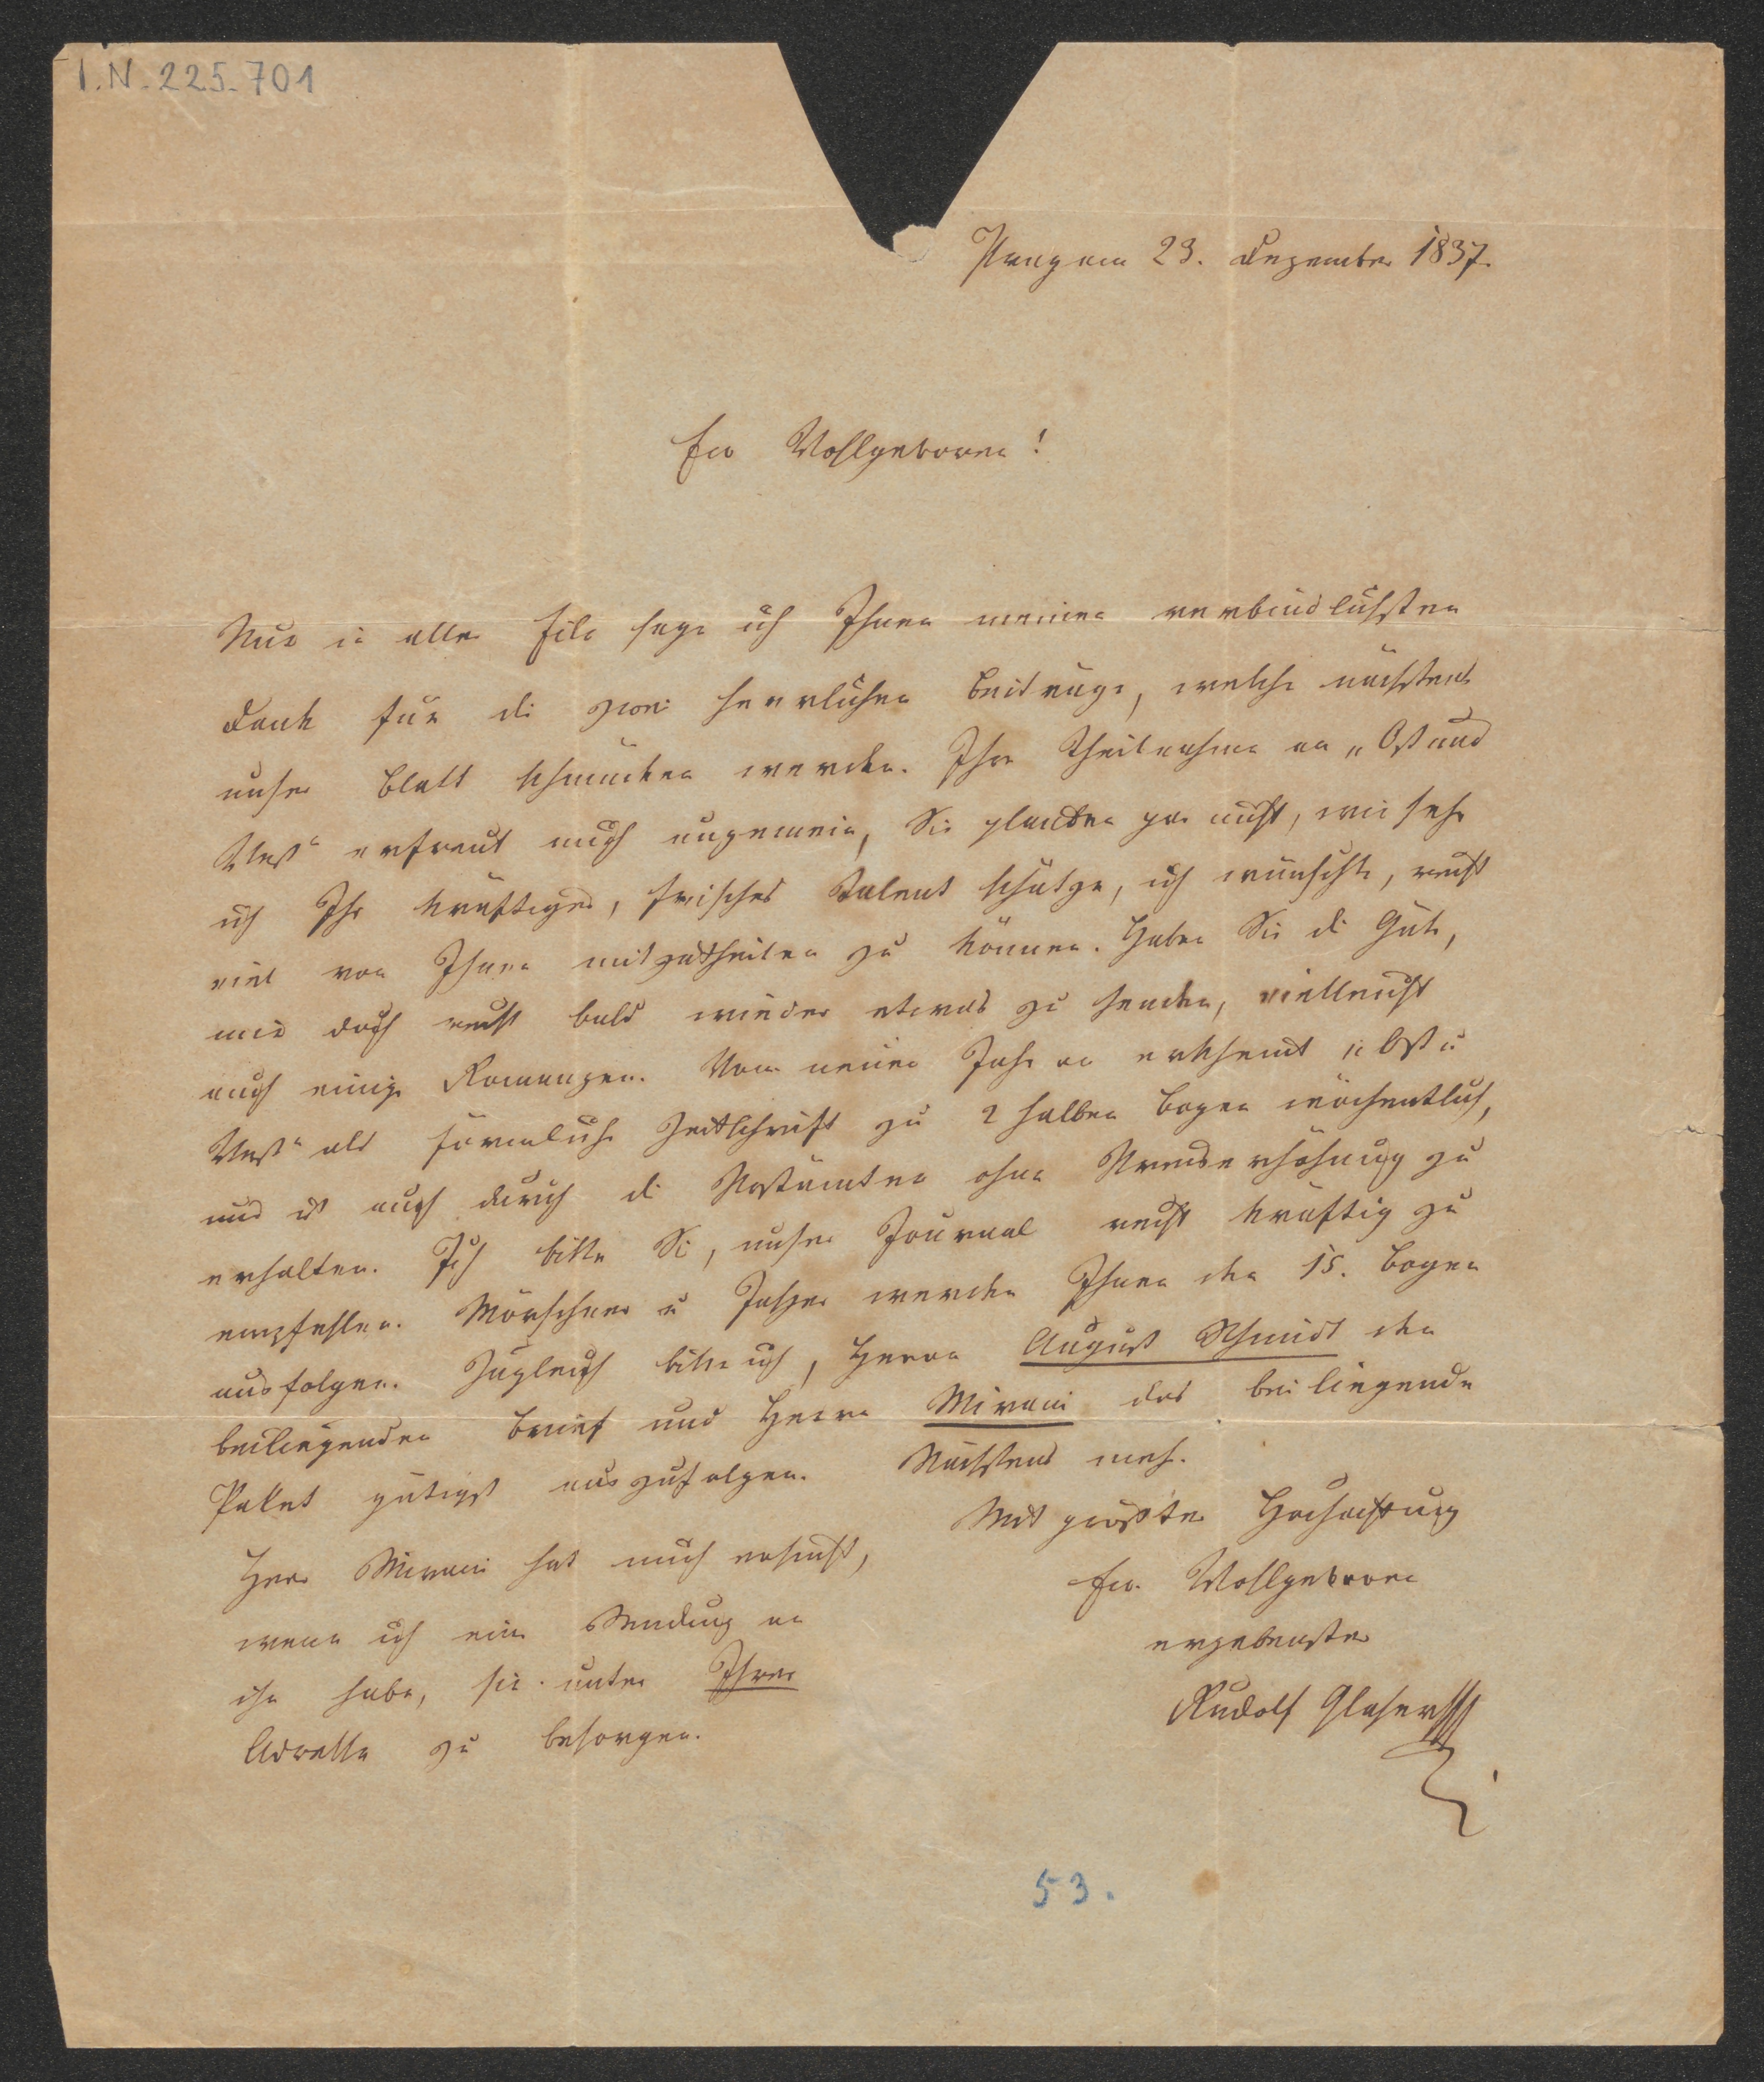 I.N. 225.701
Prag am 23. Dezember 1837.
Ew Wohlgeboren!
Nur in aller Eile sage ich Ihnen meinen verbindlichsten
Dank für die zwei herrlichen Beiträge, welche nächstens
unser Blatt schmücken werden. Ihre Theilnahme an „Ost und
West“ erfreut mich ungemein, Sie glauben gar nicht, wie sehr
ich Ihr kräftiges, frisches Talent schätze, ich wünschte, recht
viel von Ihnen mitzutheilen zu können. Haben Sie die Güte,
mir doch recht bald wieder etwas zu senden, vielleicht
auch einige Romanzen. Vom neuen Jahr an erscheint „Ost u
West“ als förmliche Zeitschrift zu 2 halben Bogen wöchentlich,
und ist auch durch die Postämter ohne Preiserhöhung zu
erhalten. Ich bitte Sie, unser Journal recht kräftig zu
empfehlen. Mörschner u Jasper werden Ihnen den 15. Bogen
ausfolgen. Zugleich bitte ich, Herrn August Schmidt den
beiliegenden Brief und Herrn Mirani das beiliegende
Paket gütigst auszufolgen. Nächstens mehr.
Mit größter Hochachtung
Ew. Wohlgeboren
ergebenster
Rudolf Glaser
Herr Mirani hat mich ersucht,
wenn ich eine Sendung an
ihn habe, sie unter Ihrer
Adresse zu besorgen.
53.